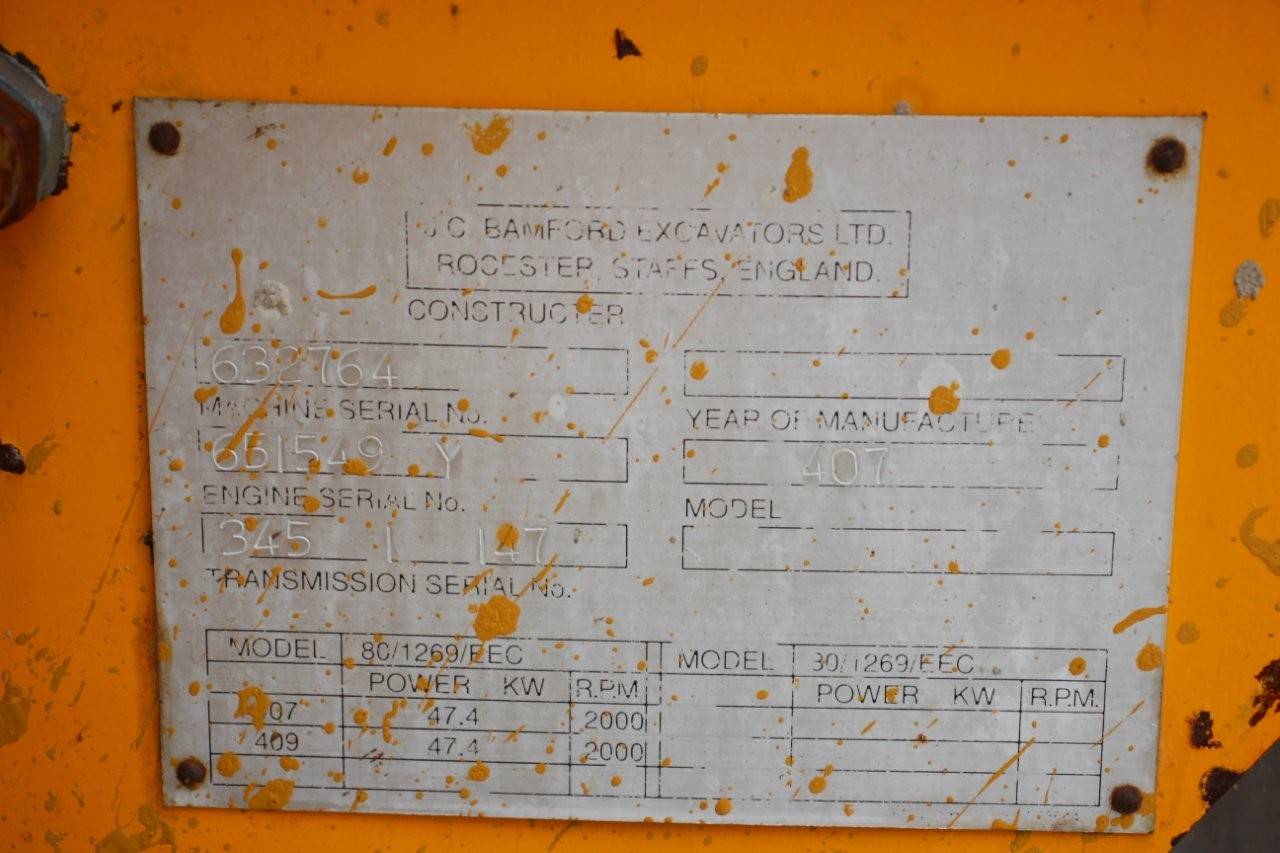 J.C. BAMFORD EXCAVATORS LTD.
ROCESTER, STAFFS, ENGLAND.
CONSTRUCTER
632764
MACHINE SERIAL No.
YEAR OF MANUFACTURE
651549 Y
407
ENGINE SERIAL No.
MODEL
345 1 147
TRANSMISSION SERIAL No.
MODEL 80/1269/EEC MODEL 80/1269/EEC
POWER KW R.P.M. POWER KW R.P.M.
407 47.4 2000
409 47.4 2000